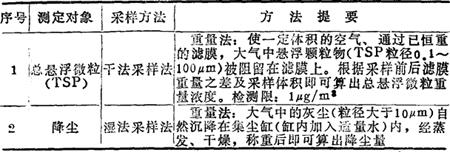 序号 测定对象 采样方法 方法提要
重量法:使一定体积的空气、通过已恒重
的滤膜,大气中悬浮颗粒物(TSP粒径0.1~
1 总悬浮微粒 干法采样法 100μm)被阻留在滤膜上。根据采样前后滤膜
(TSP) 重量之差及采样体积即可算出总悬浮微粒重
量浓度。检测限:1μg/m³
重量法:大气中的灰尘(粒径大于10μm)自
2 降尘 湿法采样法 然沉降在集尘缸(缸内加入适量水)内,经蒸
发、干燥,称重后即可算出降尘量